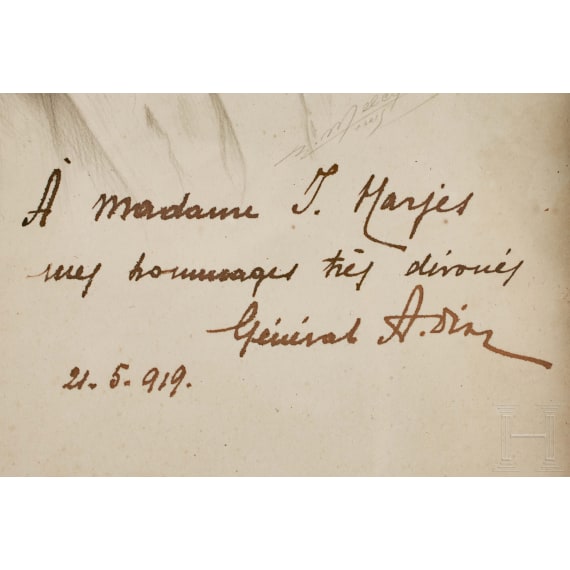 À Madame J. Harjes
mes hommages très dévoués
Général A. Diaz
21. 5. 919.
H